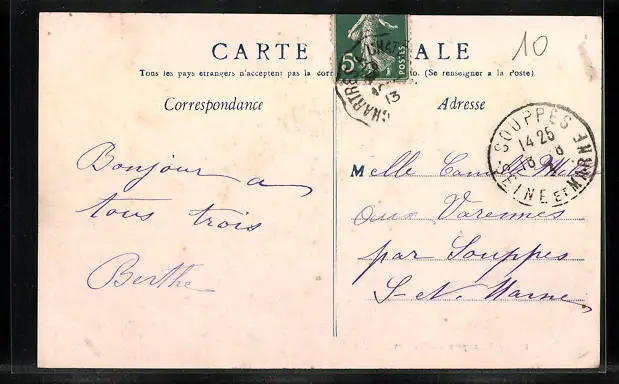 CARTE ALE
10
Tous les pays étrangers n'acceptent pas la cor (Se renseigner à la Poste)
5
POSTES
CHARTRES
13
Correspondance
Adresse
SOUPPES
14 25
SEINE ET MARNE
Bonjour a
tous trois
Berthe
Melle
aux Varennes
par Souppes
S-et-Marne